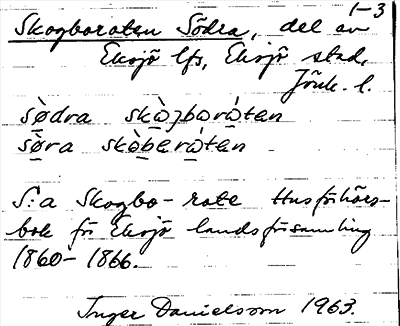 1-3
Skogboroten Södra, del av
Eksjö lfs, Eksjö stad,
Jönk. l.
sø̀dra skògbaròten
sø̀ra skòberòten
S:a Skogbo-rote Husförhörs-
bok för Eksjö landsförsamling
1860-1866.
Inger Danielsson 1963.